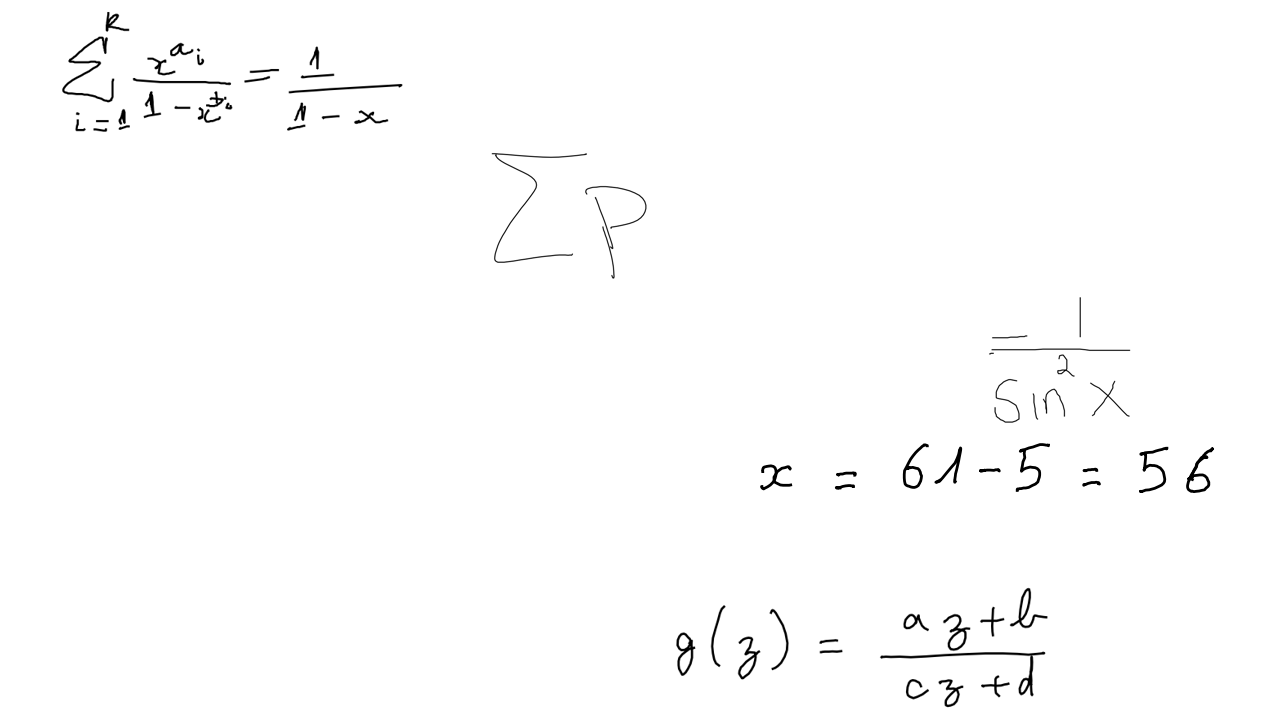 \sum_{i=1}^{k} \frac{x^{a_i}}{1-x^{b_i}} = \frac{1}{1-x}
\sum p
= \frac{1}{\sin^2 x}
x = 61 - 5 = 56
g(z) = \frac{az+b}{cz+d}